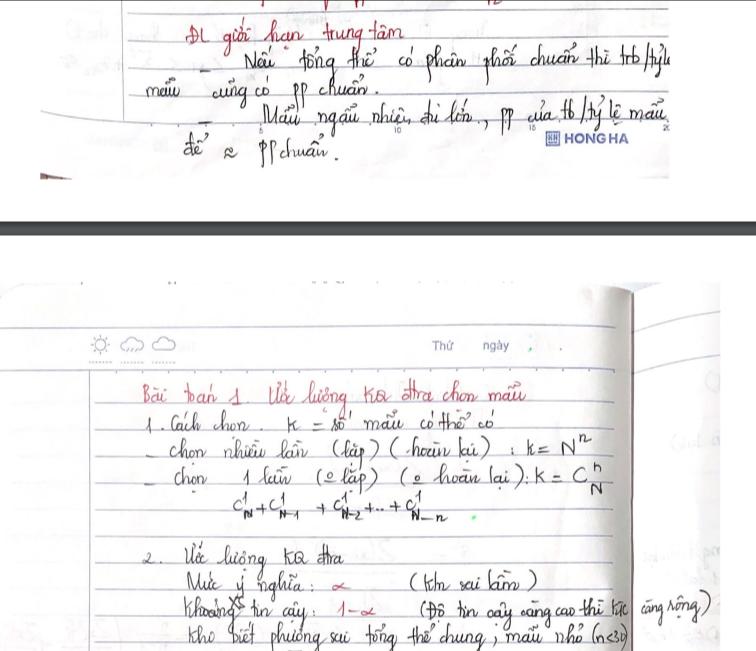 ĐL giới hạn trung tâm
- Nếu tổng thể có phân phối chuẩn thì trb/tỷ lệ
mẫu cũng có pp chuẩn.
- Mẫu ngẫu nhiên, đủ lớn, pp của tb/tỷ lệ mẫu
để ≈ pp chuẩn.
HONG HA
Thứ ngày
Bài toán 1. Ước lượng KQ đtra chọn mẫu
1. Cách chọn. K = số mẫu có thể có
- chọn nhiều lần (lặp) (hoàn lại) : k = N^n
- chọn 1 lần (lặp) (hoàn lại): K = C_N^n
C_N^1 + C_{N-1}^1 + C_{N-2}^1 + .. + C_{N-n}^1
2. Ước lượng KQ đtra
Mức ý nghĩa: α (khn sai lầm)
Khoảng tin cậy: 1-α (Độ tin cậy càng cao thì càng rộng)
Kho biết phương sai tổng thể chung, mẫu nhỏ (n<30)